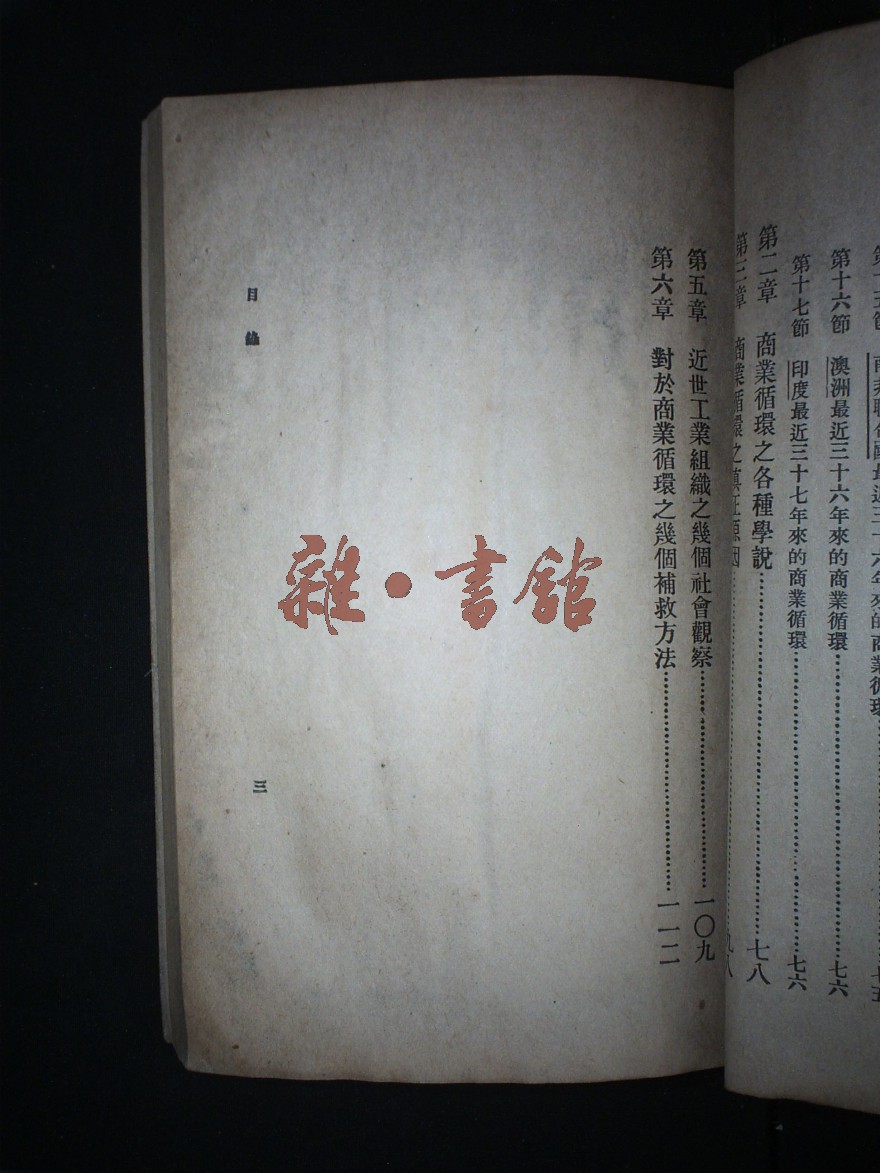 南非聯合國最近三十六年來的商業循環……七五
第十六節 澳洲最近三十六年來的商業循環……七六
第十七節 印度最近三十七年來的商業循環……七六
第二章 商業循環之各種學說……七八
第三章 商業循環之真正原因……九八
第五章 近世工業組織之幾個社會觀察……一〇九
第六章 對於商業循環之幾個補救方法……一一二
目錄
三
雜·書館